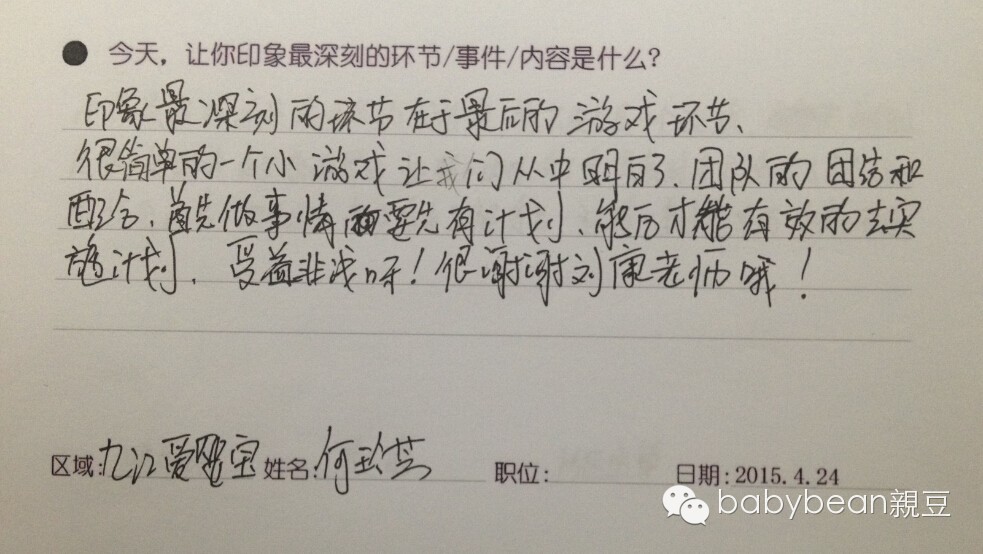 ● 今天，让你印象最深刻的环节/事件/内容是什么？
印象最深刻的环节在于最后的游戏环节、
很简单的一个小游戏让我们从中明白了、团队的团结和
配合、首先做事情要先有计划、然后才能有效的去实
施计划、受益非浅呀！很谢谢刘康老师哦！
区域:九江爱婴宝 姓名:何玲芸 职位: 日期:2015.4.24
babybean親豆